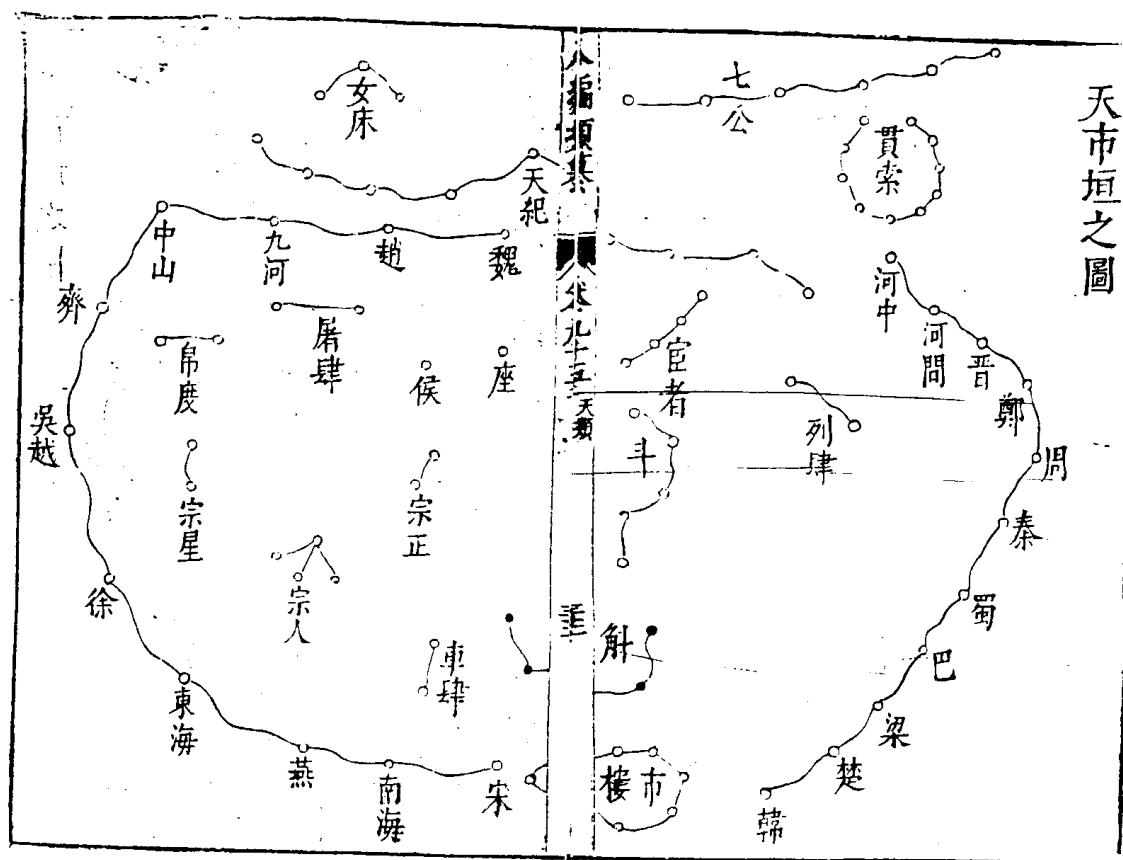 天市垣之圖
七公
貫索
河中
河間
晋
鄭
周
秦
蜀
巴
梁
楚
韓
列肆
宦者
斗
斛
市樓
八編類纂
卷九十五
天類
女床
天紀
魏
趙
九河
中山
齊
吳越
徐
東海
燕
南海
宋
屠肆
帛度
侯
座
宗星
宗正
宗人
車肆